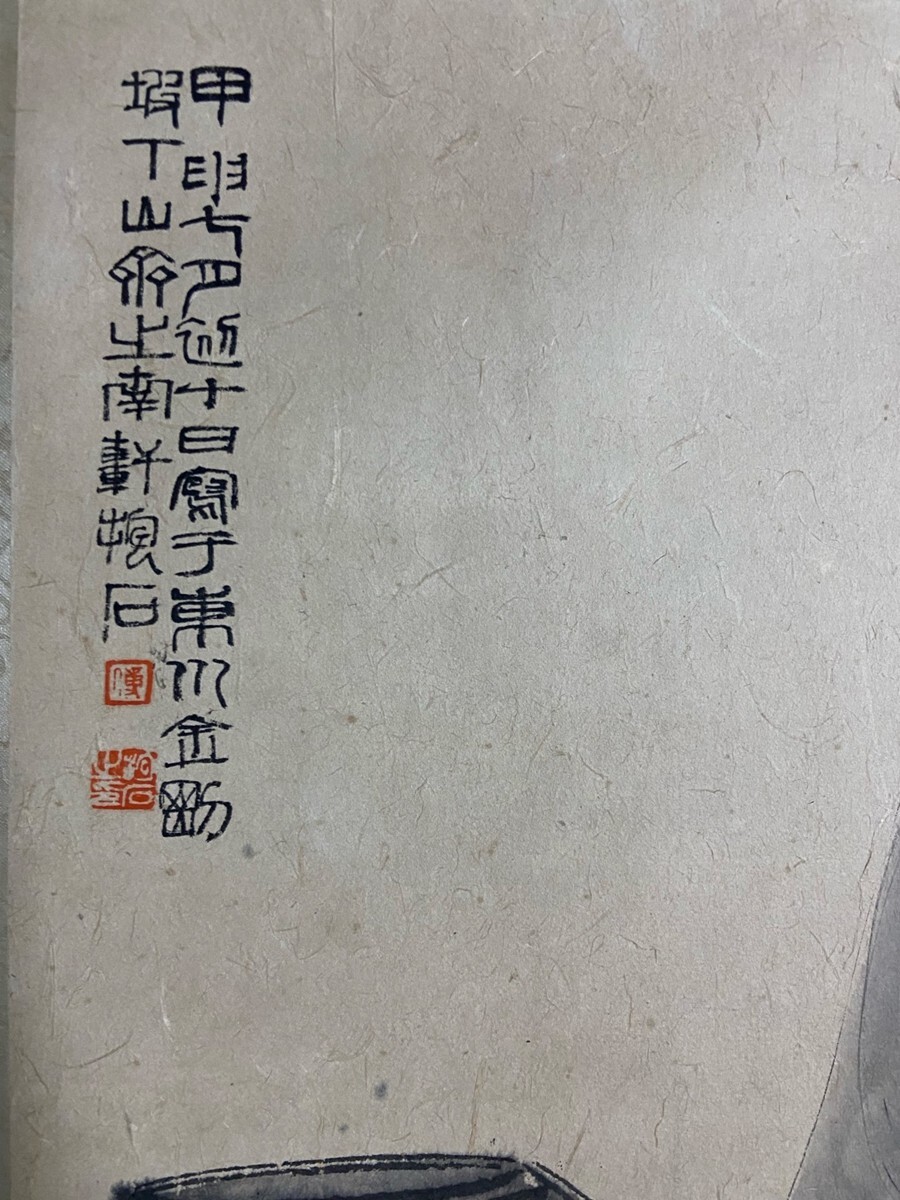 甲申七月初十日寫于東川金剛
坡下山齋之南軒抱石
傅
抱石之印